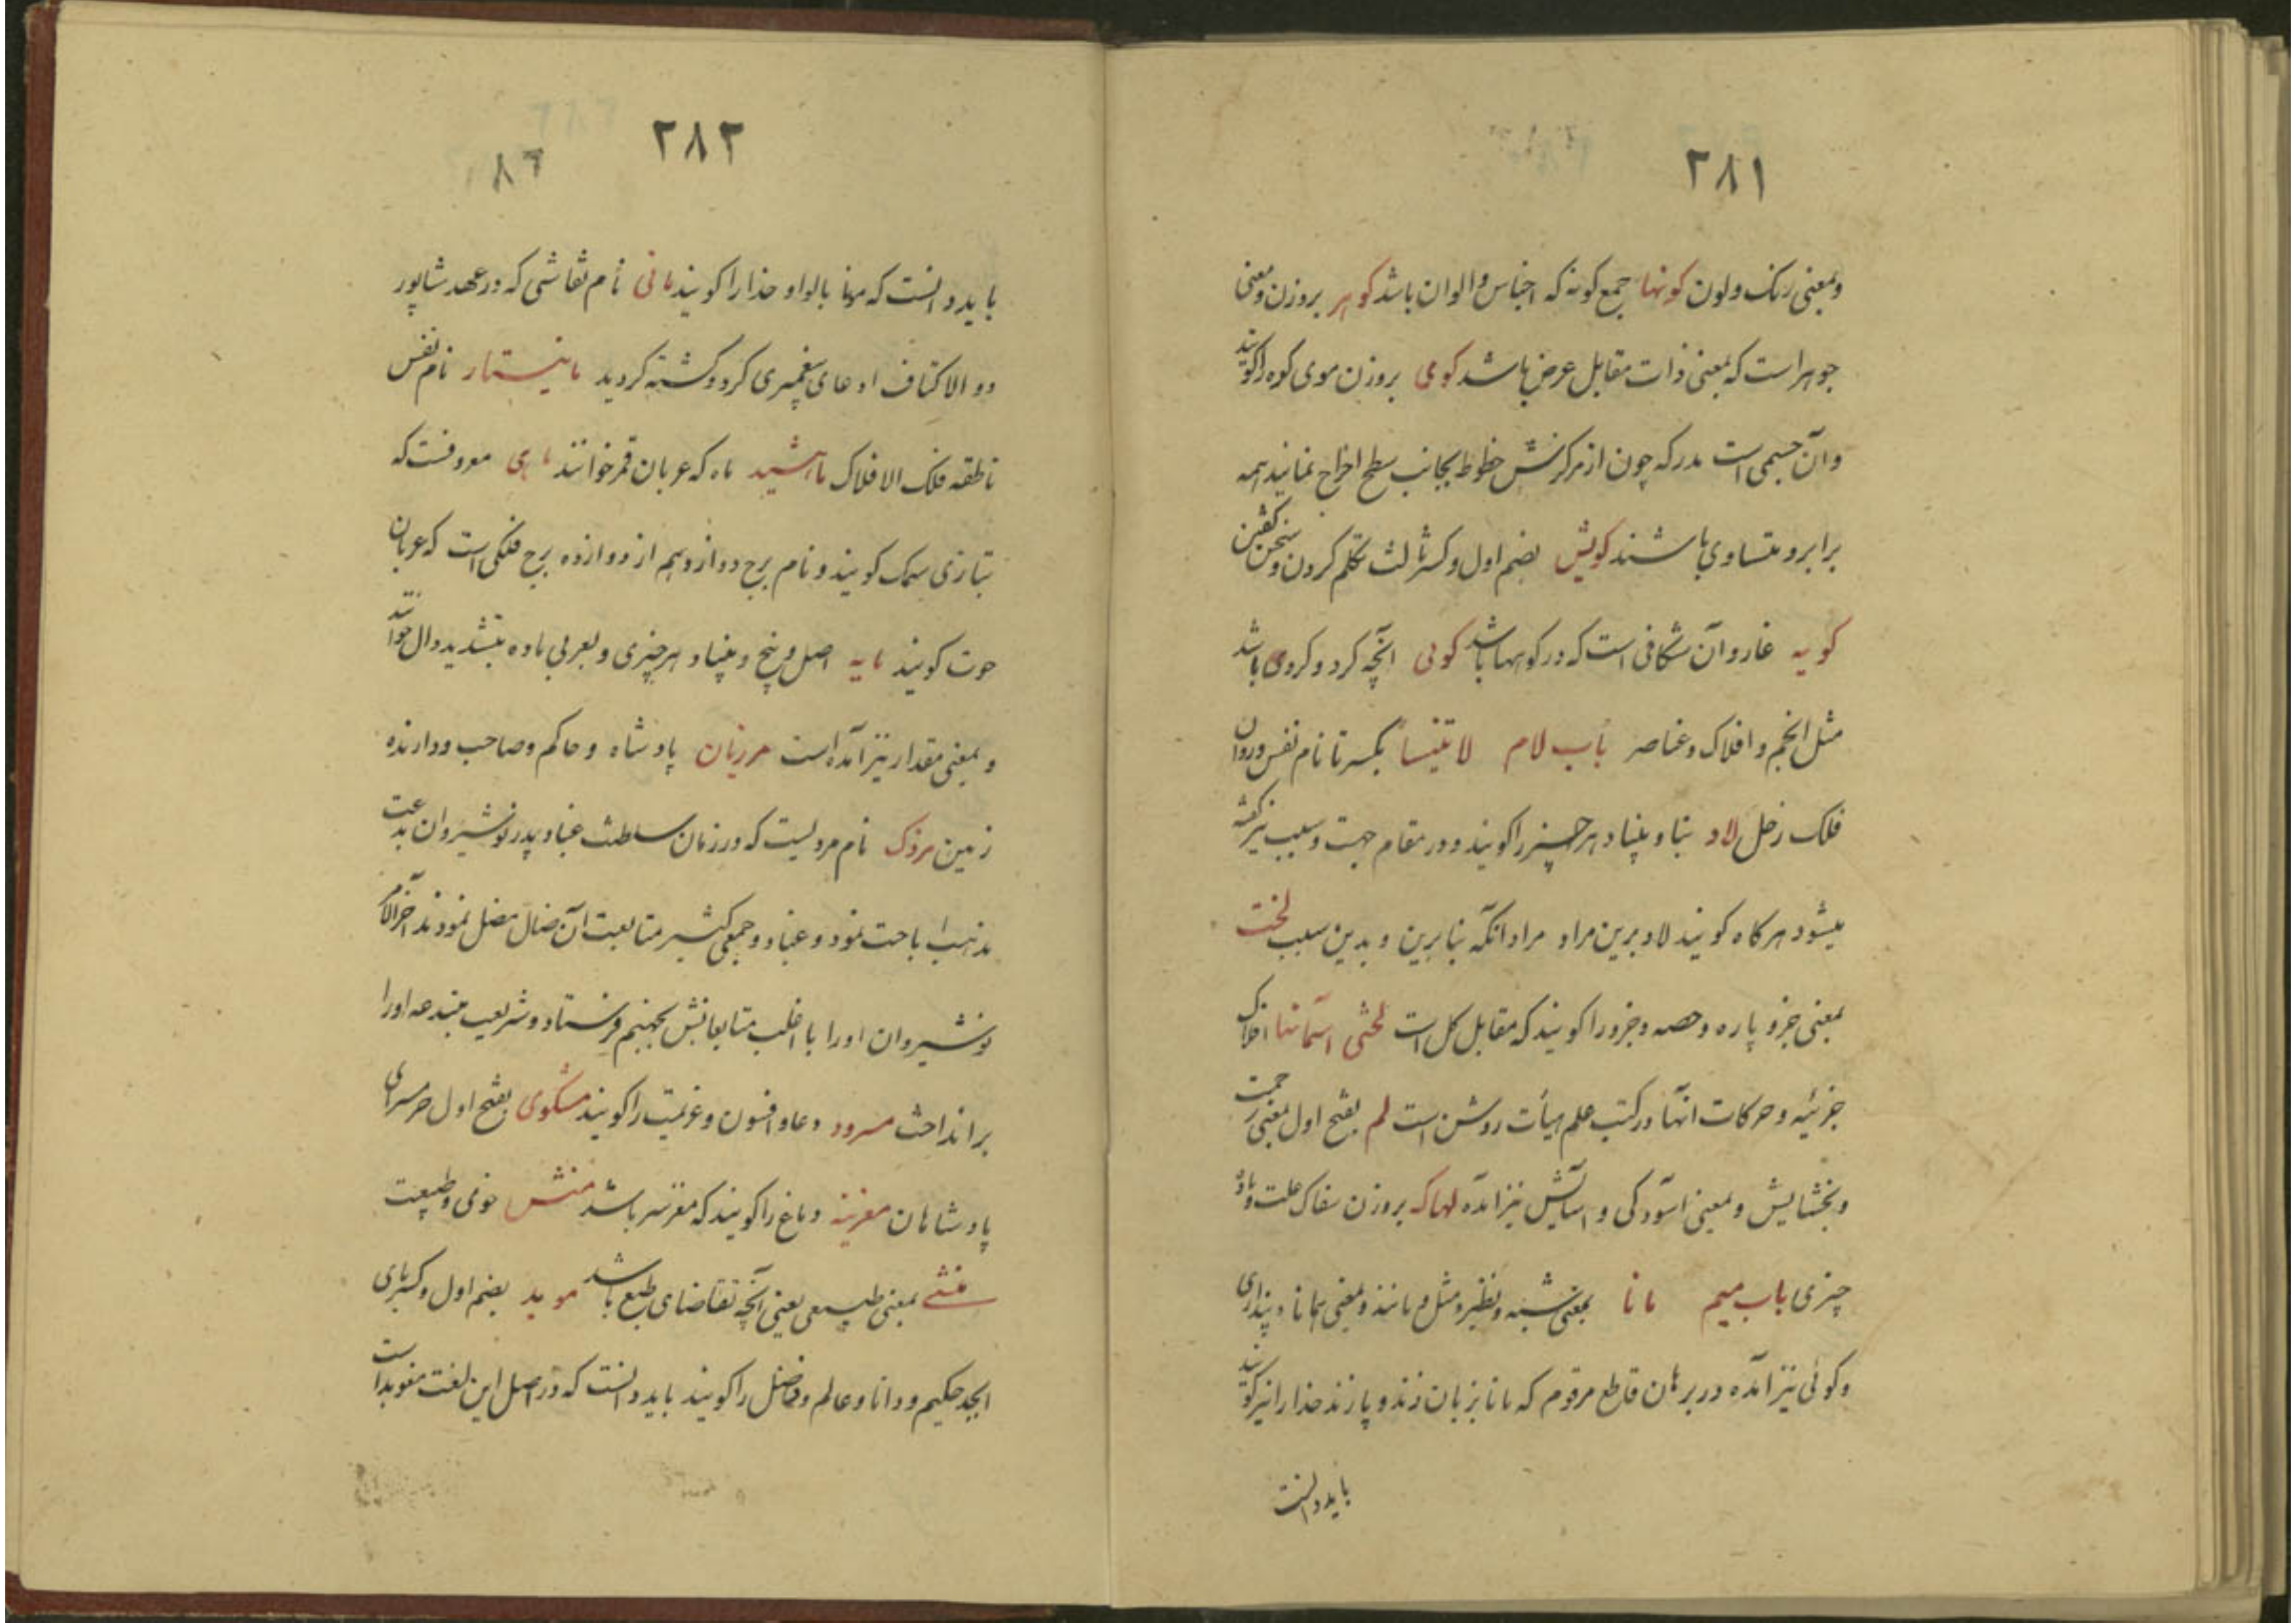 ۲۸۱
وبمعنی رنک ولون کونها جمع کونه که اجناس والوان باشد کوهر بروزن ومعنی
جوهر است که بمعنی ذات مقابل عرض باشد کوی بروزن موی کوه را کویند
وآن جسمی است مدر که چون از مرکزش خطوط بجانب سطح اخراج نمایند همه
برابر و متساوی باشند کویش بضم اول وکسر ثالث تکلم کردن و سخن کفتن
کویه غار وآن شکافی است که در کوهها باشد کوئی آنچه کرد و کروی باشد
مثل انجم و افلاک و عناصر باب لام لاتینسا بکسر تا نام نفس و روان
فلک زحل لاد بنا و بنیاد هر چیز را کویند و در مقام جهت و سبب نیز کفته
میشود هر کاه کویند لاد برین مراد مراد آنکه بنا برین و بدین سبب لخت
بمعنی جزو پاره و حصه و جزو را کویند که مقابل کل است لختی آسمانها افلاک
جزئیه و حرکات آنها در کتب علم هیأت روشن است لم بفتح اول بمعنی رحمت
و بخشایش و بمعنی آسودکی و آسایش نیز آمده لهاکه بروزن سفاک علت و ماده
چیزی باب میم مانا بمعنی شبه و نظیر و مثل و مانند و بمعنی همانا و پنداری
و کوئی نیز آمده در برهان قاطع مرقوم که مانا بزبان زند و پازند خدا را نیز کویند
باید دانست
۲۸۲
۸۲
باید دانست که مهنا بالواو خدا را کویند مانی نام نقاشی که در عهد شاپور
ذو الاکتاف ادعای پیغمبری کرد و کشته کردید مانیستار نام نفس
ناطقه فلک الافلاک ماهشید ماه که عربان قمر خوانند ماهی معروفست که
بتازی سمک کویند و نام برج دوازدهم از دوازده برج فلکی است که عربان
حوت کویند مایه اصل و بیخ و بنیاد هر چیزی و بعربی ماده بتشدید دال خوانند
و بمعنی مقدار نیز آمده است مرزبان پادشاه و حاکم و صاحب و دارنده
زمین مزدک نام مردیست که در زمان سلطنت غباد پدر نوشیروان بدعت
مذهب اباحت نمود و غباد و جمعی کثیر متابعت آن ضال مضل نمودند آخر الامر
نوشیروان او را با اغلب متابعانش بجهنم فرستاد و شریعت مبتدعه او را
برانداخت مسرود دعا و افسون و عزیمت را کویند مشکوی بفتح اول حرمسرای
پادشاهان مغزینه دماغ را کویند که مغز سر باشد منش خوی و طبیعت
منشی بمعنی طبیعی یعنی آنچه تقاضای طبع باشد موبد بضم اول و کسر بای
ابجد حکیم و دانا و عالم و فاضل را کویند باید دانست که در اصل این لغت مغوبد است